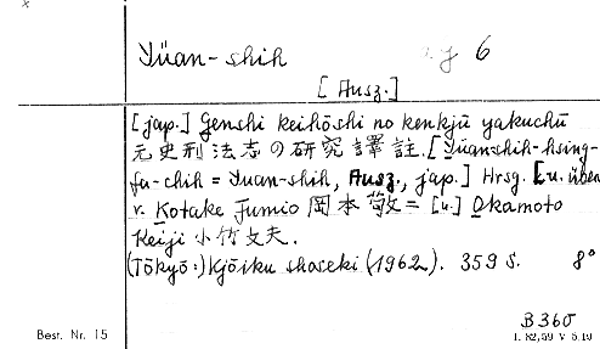 Yüan-shih 6
[Ausz.]
[jap.] Genshi keihōshi no kenkjū yakuchū
元史刑法志の研究譯註. [Yüan-shih-hsing-
fa-chih = Yuan-shih, Ausz., jap.] Hrsg. [u. übers
v. Kotake Fumio 岡本敬二 [u.] Okamoto
Keiji 小竹文夫.
(Tōkyō:) Kjōiku shoseki (1962). 359 S. 8°
B 360
Best. Nr. 15 I. 82,59 V 5.19